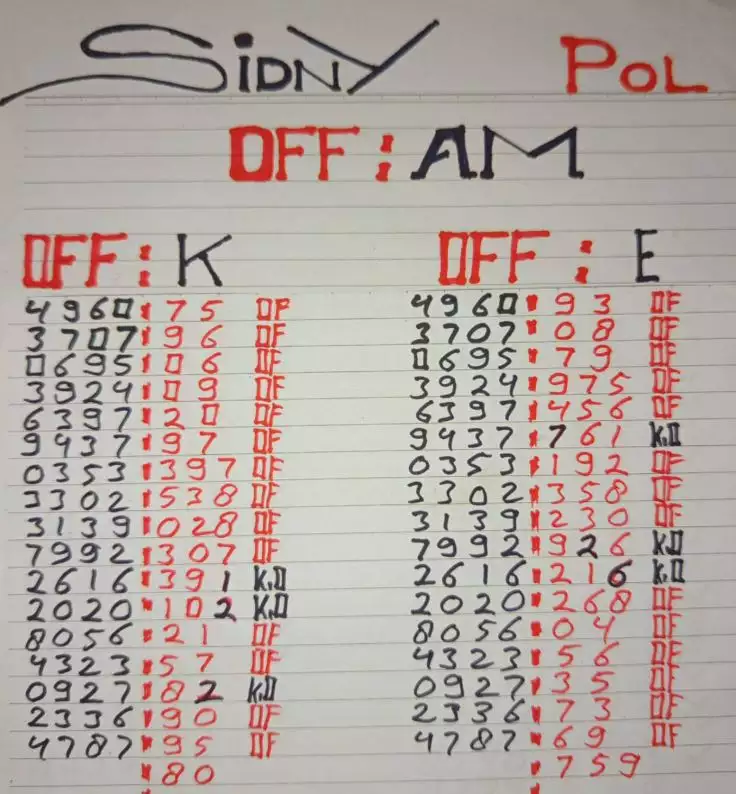 SiDNY PoL
OFF : AM
OFF : K OFF : E
4960 : 75 OF 4960 : 93 OF
3707 : 96 OF 3707 : 08 OF
0695 : 06 OF 0695 : 79 OF
3924 : 09 OF 3924 : 975 OF
6397 : 20 OF 6397 : 456 OF
9437 : 97 OF 9437 : 761 K.O
0353 : 397 OF 0353 : 192 OF
3302 : 538 OF 3302 : 358 OF
3139 : 028 OF 3139 : 230 OF
7992 : 307 OF 7992 : 926 K.O
2616 : 391 K.O 2616 : 216 K.O
2020 : 102 K.O 2020 : 268 OF
8056 : 21 OF 8056 : 04 OF
4323 : 57 OF 4323 : 56 OF
0927 : 82 K.O 0927 : 35 OF
2336 : 90 OF 2336 : 73 OF
4787 : 95 OF 4787 : 69 OF
: 80 : 759